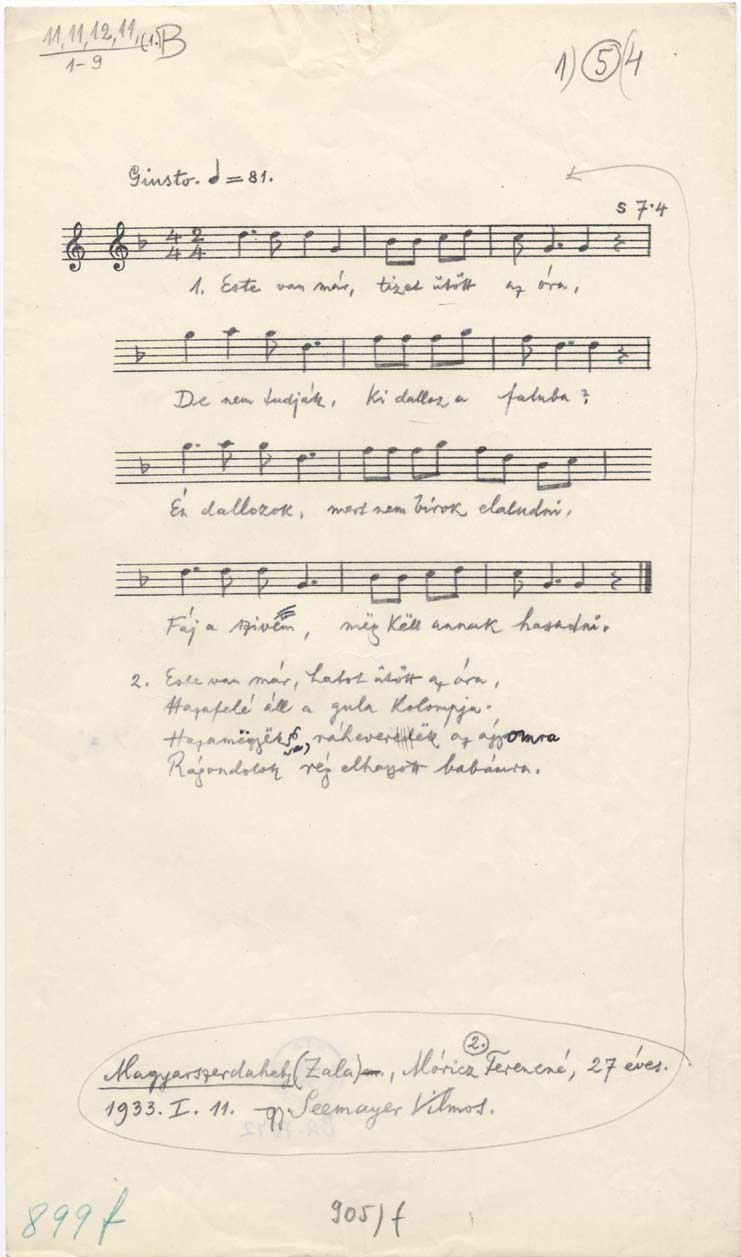 11, 11, 12, 11, (1.) B
1-9
1) 5 (4
Giusto. = 81.
s 7·4
4 4 2 4
1. Este van már, tizet ütött az óra,
De nem tudják, Ki dalloz a faluba?
Én dallozok, mert nem birok elaludni,
Fáj a szivem, mëg Këll annak hasadni.
2. Este van már, hatot ütött az óra,
Hazafelé áll a gula Kolompja.
Hazamëgyëk, ráheveredëk az ágyomra
Rágondolok rég elhagyott babámra.
2.
Magyarszerdahely (Zala), Móricz Ferencné, 27 éves.
1933. I. 11. gy. Seemayer Vilmos.
899 f
905/f